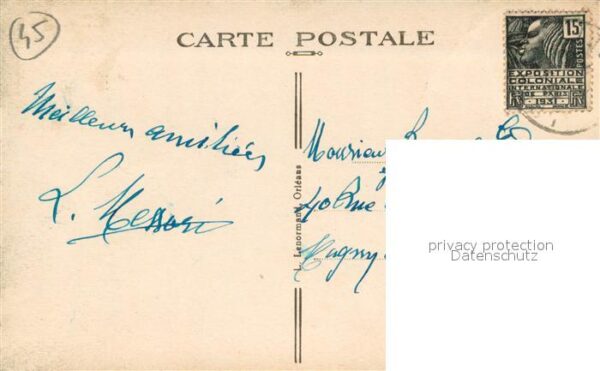 45
CARTE POSTALE
15c
POSTES
EXPOSITION
COLONIALE
INTERNATIONALE
DE PARIS
1931
Meilleures amitiés
L.
L. Lenormand, Orléans
Monsieur
40 Rue
Magny
privacy protection
Datenschutz